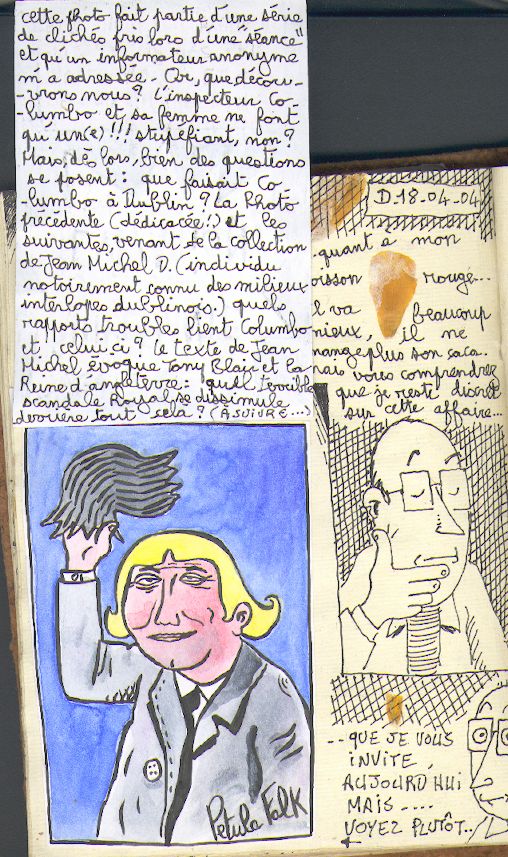 cette photo fait partie d'une série
de clichés pris lors d'une "séance"
et qu'un informateur anonyme
m'a adressée - Or, que décou-
-vrons nous ? L'inspecteur Co-
-lumbo et sa femme ne font
qu'un(e) !!! stupéfiant, non ?
Mais, dès lors, bien des questions
se posent : que faisait Co-
-lumbo à Dublin ? La Photo
précédente (dédicacée !) et les
suivantes, venant de la collection
de Jean Michel D. (individu
notoirement connu des milieux
interlopes dublinois.) quels
rapports troubles lient Columbo
et celui ci ? Le texte de Jean
Michel évoque Tony Blair et la
Reine d'angleterre : quel terrible
scandale Royal se dissimule
derrière tout cela ? (A SUIVRE...)
Petula Falk
D.18-04-04
quant a mon
oisson rouge...
l va beaucoup
mieux, il ne
mange plus son caca.
mais vous comprendrez
que je reste discret
sur cette affaire...
...QUE JE VOUS
INVITE,
AUJOURD'HUI
MAIS ....
VOYEZ PLUTÔT..